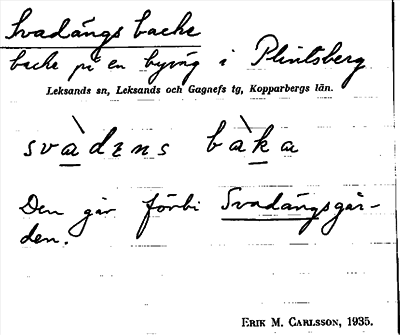 Svadängs backe
backe på en byväg i Plintsberg
Leksands sn, Leksands och Gagnefs tg, Kopparbergs län.
svàdɪns bàka
Den går förbi Svadängsgår-
den.
ERIK M. CARLSSON, 1935.